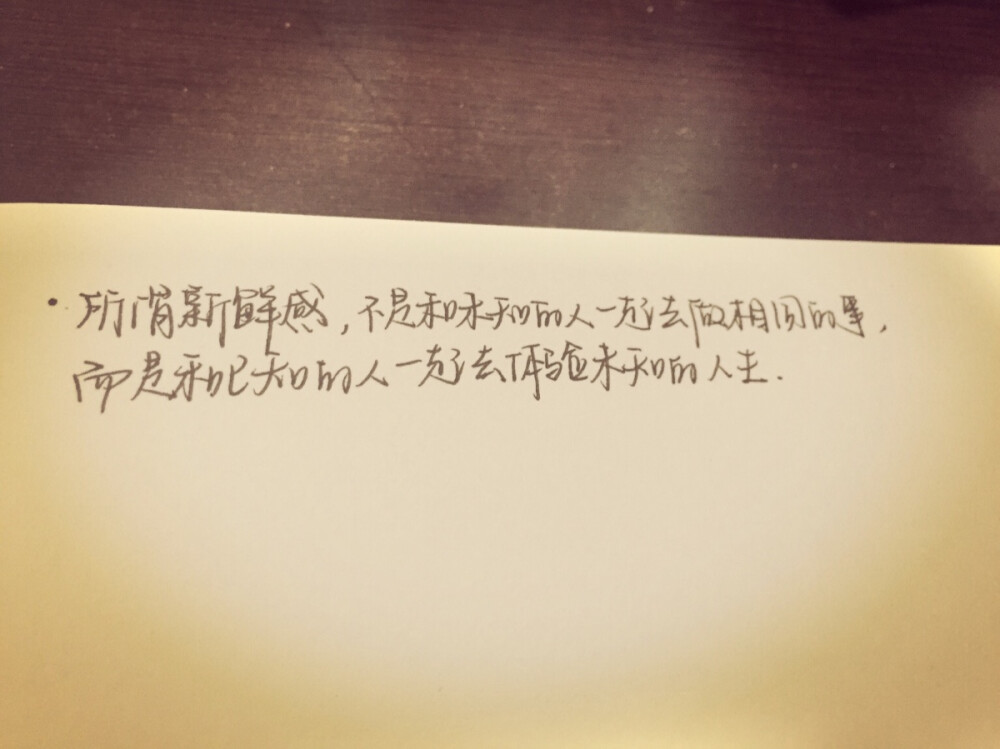 · 所谓新鲜感,不是和未知的人一起去做相同的事,
而是和已知的人一起去体验未知的人生.